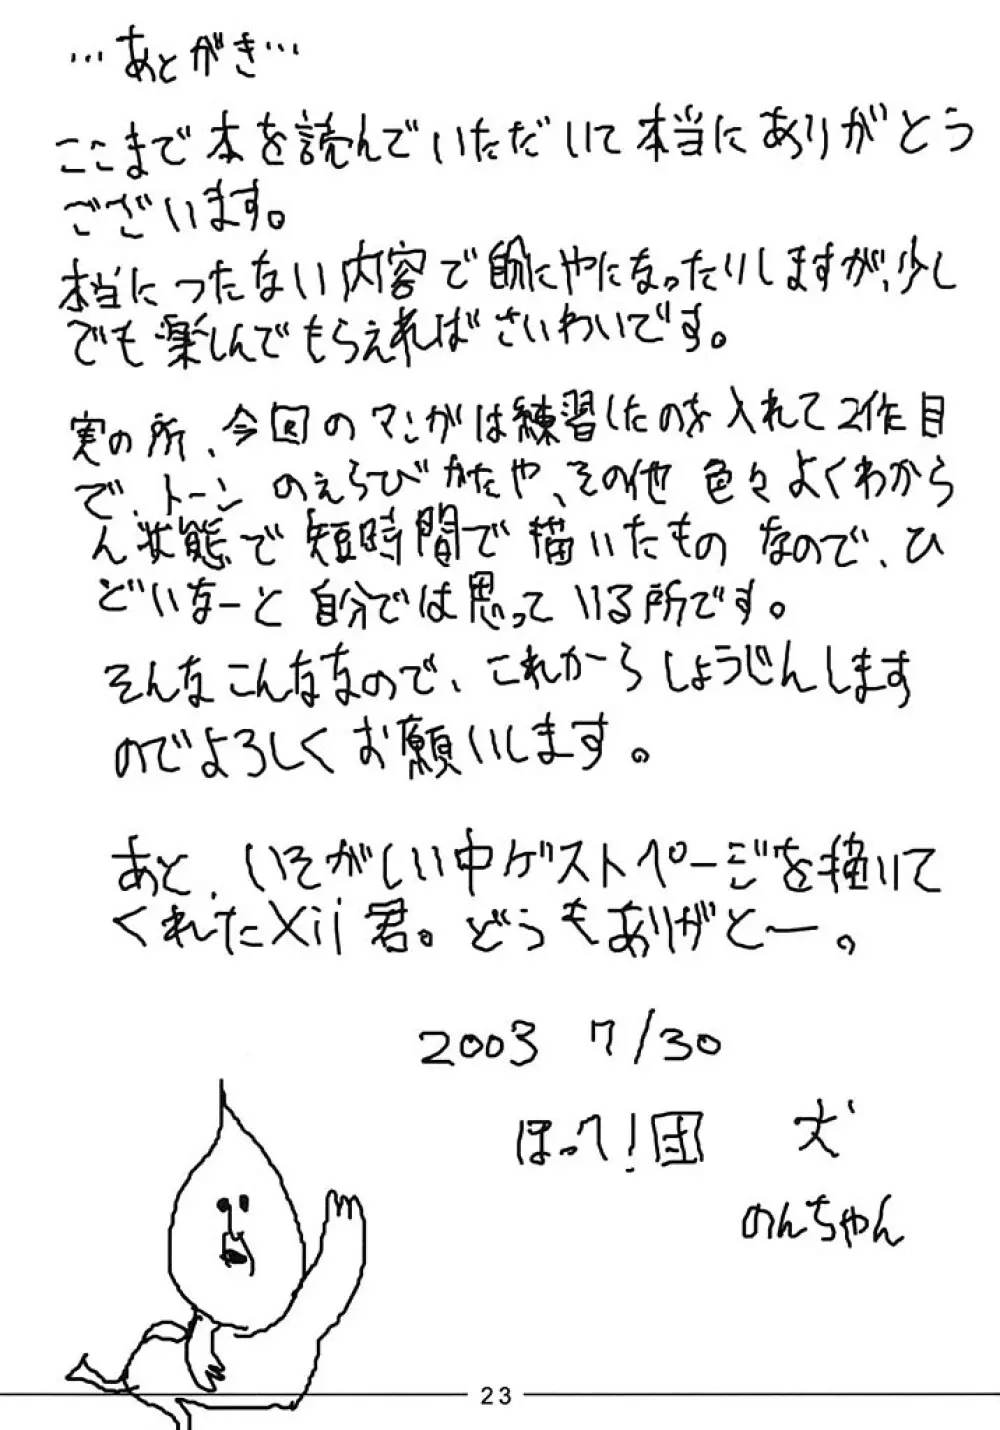 …あとがき…
ここまで本を読んでいただいて本当にありがとう
ございます。
本当につたない内容で
でも楽しんでもらえればさいわいです。
実の所、今回のマンガは練習したのを入れて2作目
で、トーンのえらびかたや、その他 色々よくわから
ん状態で短時間で描いたものなので、ひ
どいなーと自分では思っている所です。
そんなこんななので、これからしょうじんします
のでよろしくお願いします。
あと、いそがしい中ゲストページを描いて
くれたXii君。どうもありがとー。
2003 7/30
ほって!団 犬
のんちゃん
23